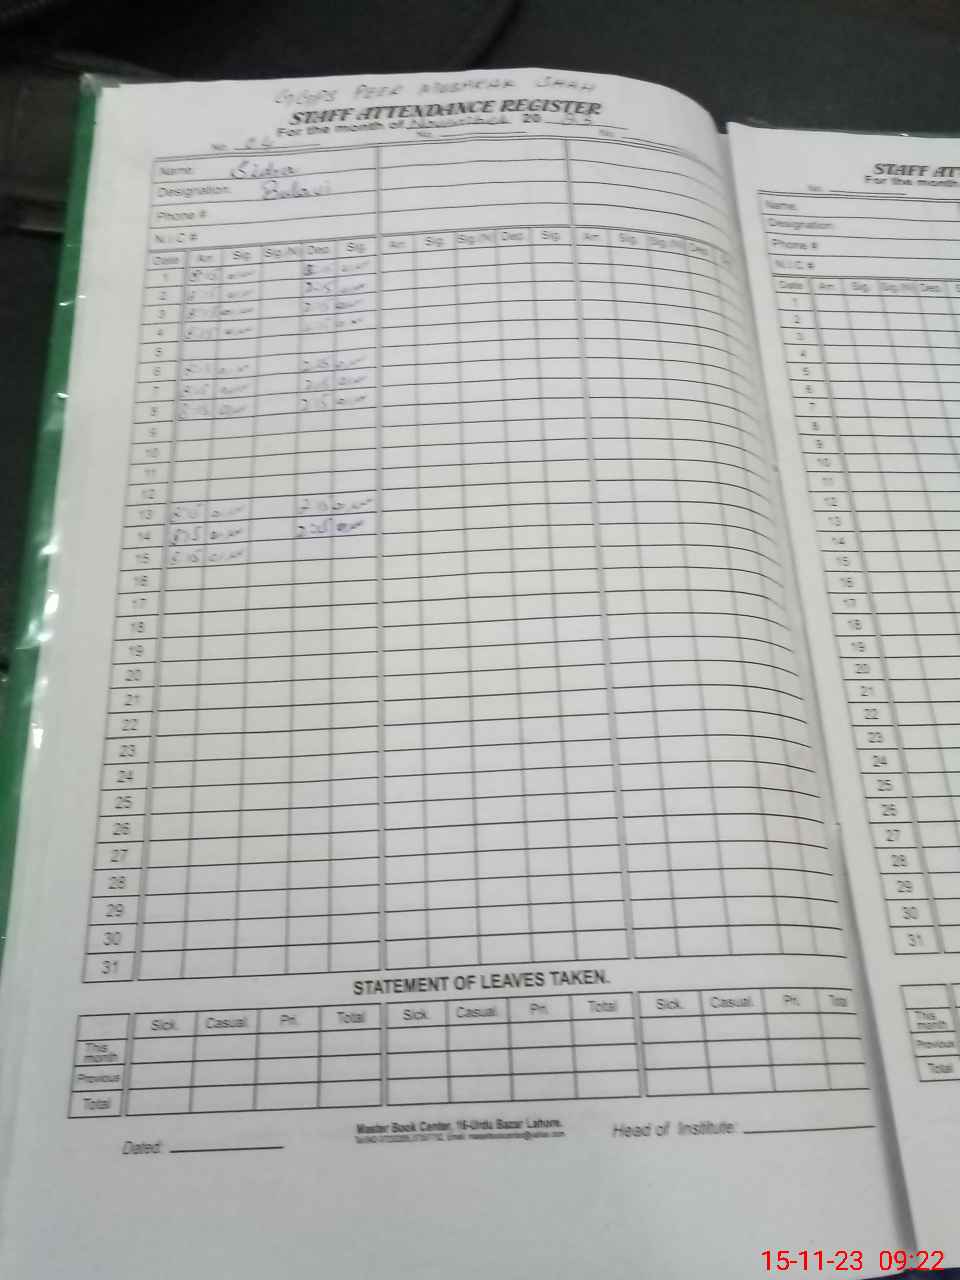 GGPS PEER MUBARAK SHAH
STAFF ATTENDANCE REGISTER
For the month of November 20 23
No. 04 No. No.
Name: Sidra
Designation:
Phone #
N.I.C #
Date Arr. Sig. Sig.(N) Dep. Sig. Arr. Sig. Sig.(N) Dep. Sig. Arr. Sig. Sig.(N) Dep.
1 8:15
2 8:15 2:15
3 8:15 2:15
4 8:15
5
6 8:15 2:15
7 8:15 2:15
8 8:15 2:15
9
10
11
12
13 8:15 2:15
14 8:15
15 8:15
16
17
18
19
20
21
22
23
24
25
26
27
28
29
30
31
STATEMENT OF LEAVES TAKEN.
Sick. Casual. Pri. Total Sick. Casual. Pri. Total Sick. Casual. Pri. Total
This month
Previous
Total
Master Book Center, 16-Urdu Bazar Lahore.
Dated: Head of Institute:
STAFF AT
For the month
No.
Name:
Designation:
Phone #
N.I.C #
Date Arr. Sig. Sig.(N) Dep. S
1
2
3
4
5
6
7
8
9
10
11
12
13
14
15
16
17
18
19
20
21
22
23
24
25
26
27
28
29
30
31
This month
Previous
Total
15-11-23 09:22